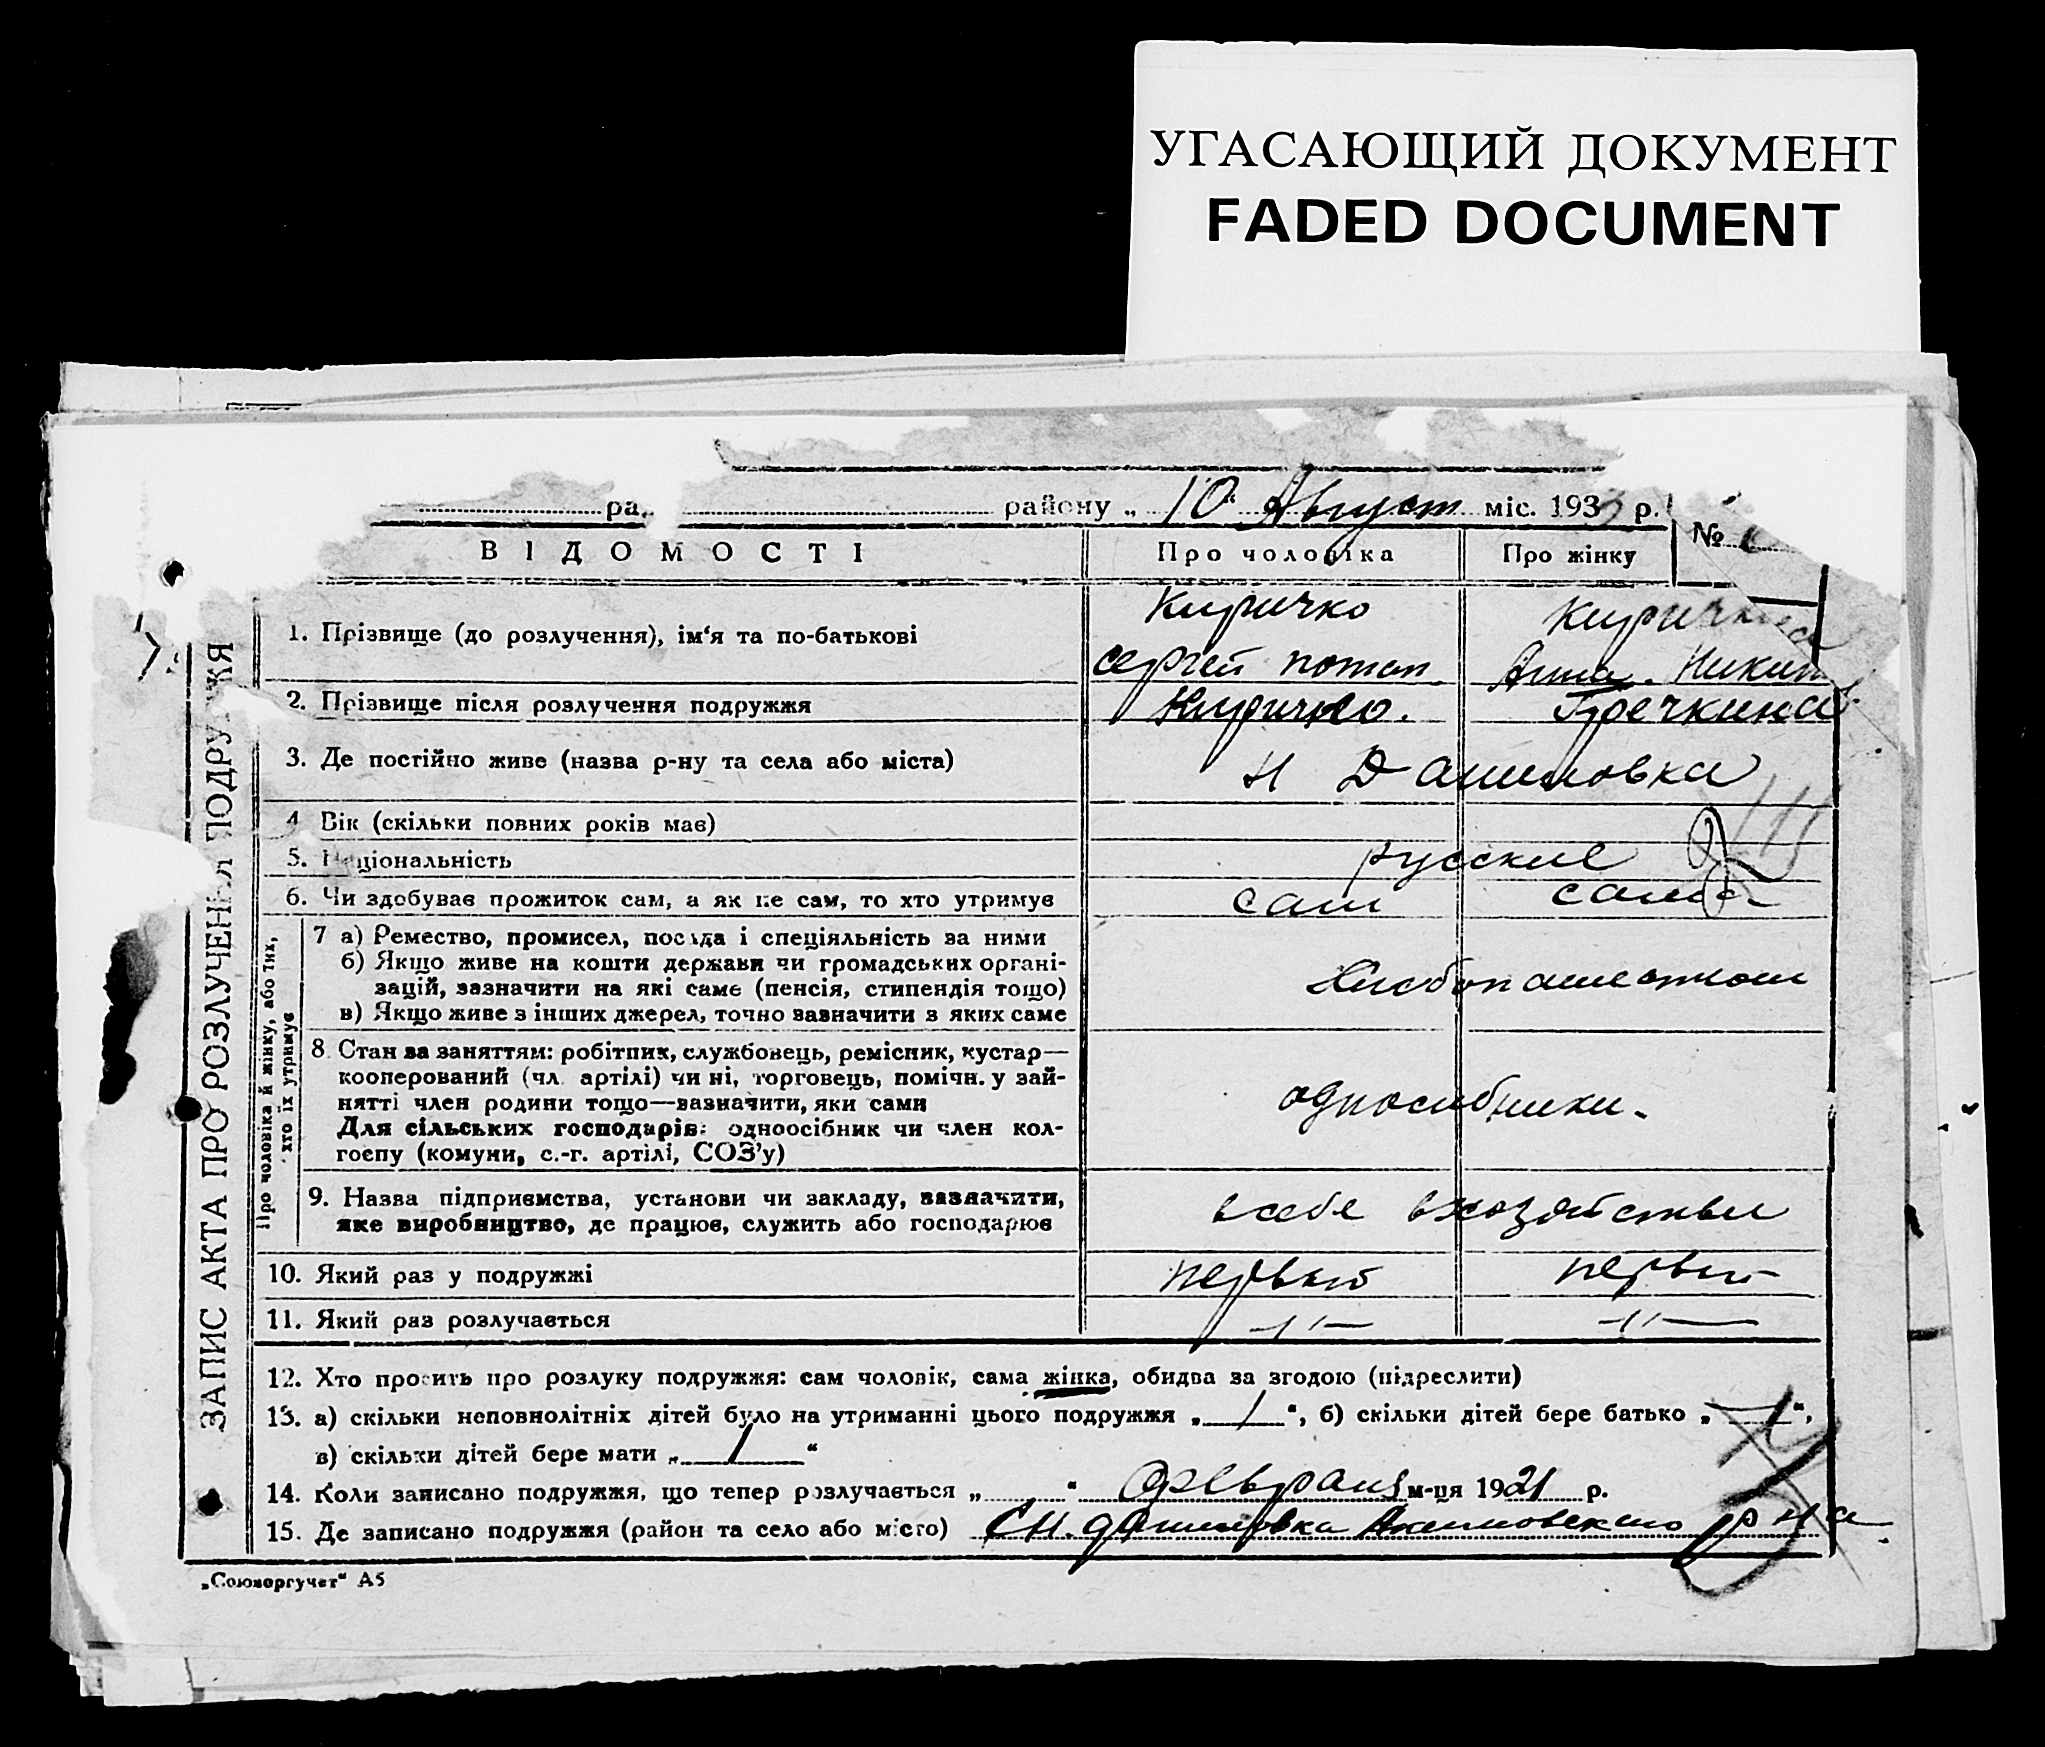 УГАСАЮЩИЙ ДОКУМЕНТ
FADED DOCUMENT
ра району „ 10 “ Август міс. 193 р.
№
ВІДОМОСТІ Про чоловіка Про жінку
1. Прізвище (до розлучення), ім‘я та по-батькові Киричко
Сергей Потап. Анна. Никит
2. Прізвище після розлучення подружжя Киричко. Гречкина
3. Де постійно живе (назва р-ну та села або міста) Н Даниловка
4 Вік (скільки повних років має)
5. Національність русские
6. Чи здобуває прожиток сам, а як не сам, то хто утримує сам сама
7 а) Ремество, промисел, посада і спеціяльність за ними
б) Якщо живе на кошти держави чи громадських органі-
зацій, зазначити на які саме (пенсія, стипендія тощо)
в) Якщо живе з інших джерел, точно зазначити з яких саме
Хлебопашеством
8 Стан за заняттям: робітник, службовець, ремісник, кустар—
кооперований (чл. артілі) чи ні, торговець, помічн. у зай-
нятті член родини тощо—зазначити, яки сами
Для сільських господарів: одноосібник чи член кол-
госпу (комуни, с.-г. артілі, СОЗ’у)
односибники.
9. Назва підприємства, установи чи закладу, зазначити,
яке виробництво, де працює, служить або господарює
в себе в хозяйстве
10. Який раз у подружжі первый первый
11. Який раз розлучається —〃— —〃—
Про чоловіка й жінку, або тих,
хто їх утримує
ЗАПИС АКТА ПРО РОЗЛУЧЕННЯ ПОДРУЖЖЯ
12. Хто просить про розлуку подружжя: сам чоловік, сама жінка, обидва за згодою (підреслити)
13. а) скільки неповнолітніх дітей було на утриманні цього подружжя „ 1 “, б) скільки дітей бере батько „ — “,
в) скільки дітей бере мати „ 1 “
14. Коли записано подружжя, що тепер розлучається „ “ Февраля м-ця 1921 р.
15. Де записано подружжя (район та село або місто) С Н. Даниловка Акимовского р на
„Союзоргучет“ А5